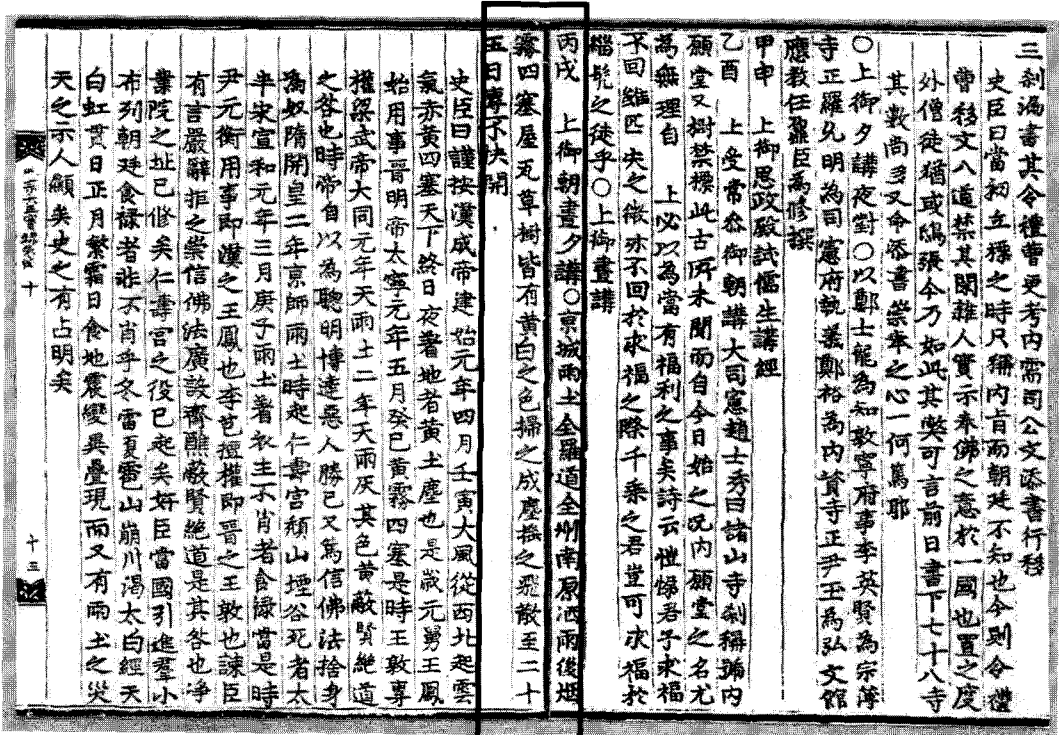 三刹漏書其令禮曹更考內需司公文添書行移
史臣曰當初立標之時只稱內旨而朝廷不知也今則令禮
曹移文八道禁其閑雜人實示奉佛之意於一國也置之度
外僧徒猶或鴟張今乃如此其弊可言前日書下七十八寺
其數尚多又令添書崇奉之心一何篤耶
○上御夕講夜對○以鄭士龍為知敦寧府事李英賢為宗簿
寺正羅允明為司憲府執義鄭裕為內資寺正尹玉為弘文館
應教任鼐臣為修撰
甲申 上御思政殿試儒生講經
乙酉 上受常參御朝講大司憲趙士秀曰諸山寺刹稱號內
願堂又樹禁標此古所未聞而自今日始之況內願堂之名尤
為無理自 上必以為當有福利之事矣詩云愷悌君子求福
不回雖匹夫之微亦不回於求福之際千乘之君豈可求福於
緇髡之徒乎○上御晝講
丙戌 上御朝晝夕講○京城雨土全羅道全州南原洒雨後烟
霧四塞屋瓦草樹皆有黃白之色掃之成塵振之飛散至二十
五日專不快開
史臣曰謹按漢成帝建始元年四月壬寅大風從西北起雲
氣赤黃四塞天下終日夜著地者黃土塵也是歲元舅王鳳
始用事晉明帝太寧元年五月癸巳黃霧四塞是時王敦專
權梁武帝大同元年天雨土二年天雨灰其色黃蔽賢絶道
之咎也時帝自以為聰明博達惡人勝己又篤信佛法捨身
為奴隋開皇二年京師雨土時起仁壽宮頹山堙谷死者太
半宋宣和元年三月庚子雨土著衣主不肖者食祿當是時
尹元衡用事即漢之王鳳也李芑擅權即晉之王敦也諫臣
有言嚴辭拒之崇信佛法廣設齋醮蔽賢絶道是其咎也淨
業院之址已修矣仁壽宮之役已起矣奸臣當國引進羣小
布列朝廷食祿者非不肖乎冬雷夏雹山崩川渴太白經天
白虹貫日正月繁霜日食地震變異疊現而又有雨土之災
天之示人顯矣史之有占明矣
十
十三